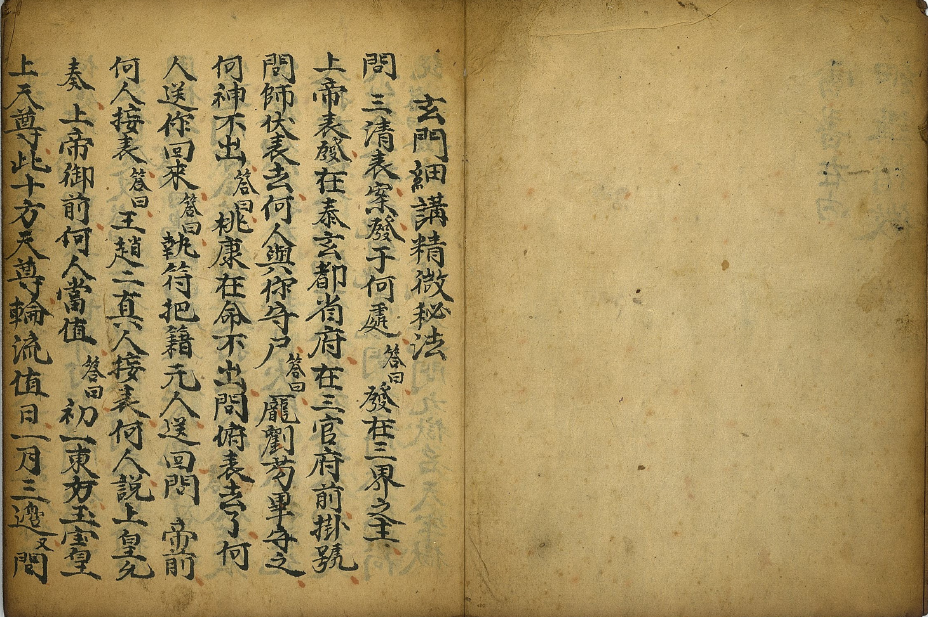 玄門細講精微秘法
問 三清表案發于何處 答曰 發在三界之主
上帝表發在泰玄都省府在三官府前掛號
問師伏表去何人與你守户 答曰 龐劉苟畢守之
何神不出 答曰 桃康在命不出問俯表去了何
人送你回來 答曰 執符把籍无人送回問 帝前
何人接表 答曰 王趙二真人接表何人說上皇允
奏 上帝御前何人當值 答曰 初一東方玉宝皇
上天尊此十方天尊輪流值日一月三遍又問